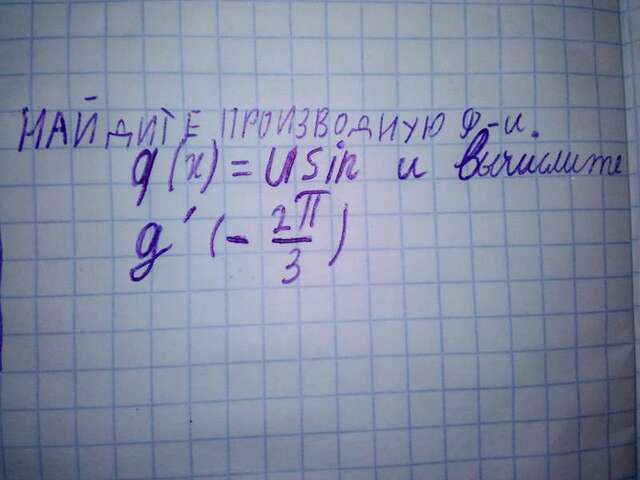 НАЙДИТЕ ПРОИЗВОДНУЮ Ф-И.
g(x) = 4 sin и вычислите
g' (- 2π/3)